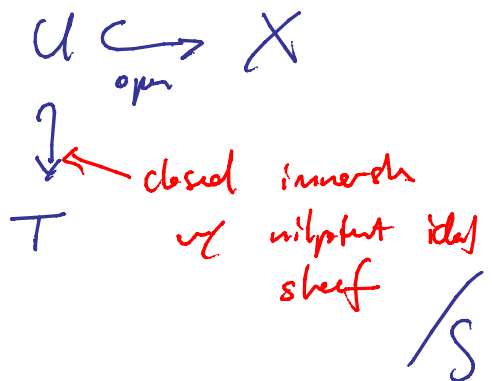 U X
open
closed immersion
T w/ nilpotent ideal
sheaf
/S